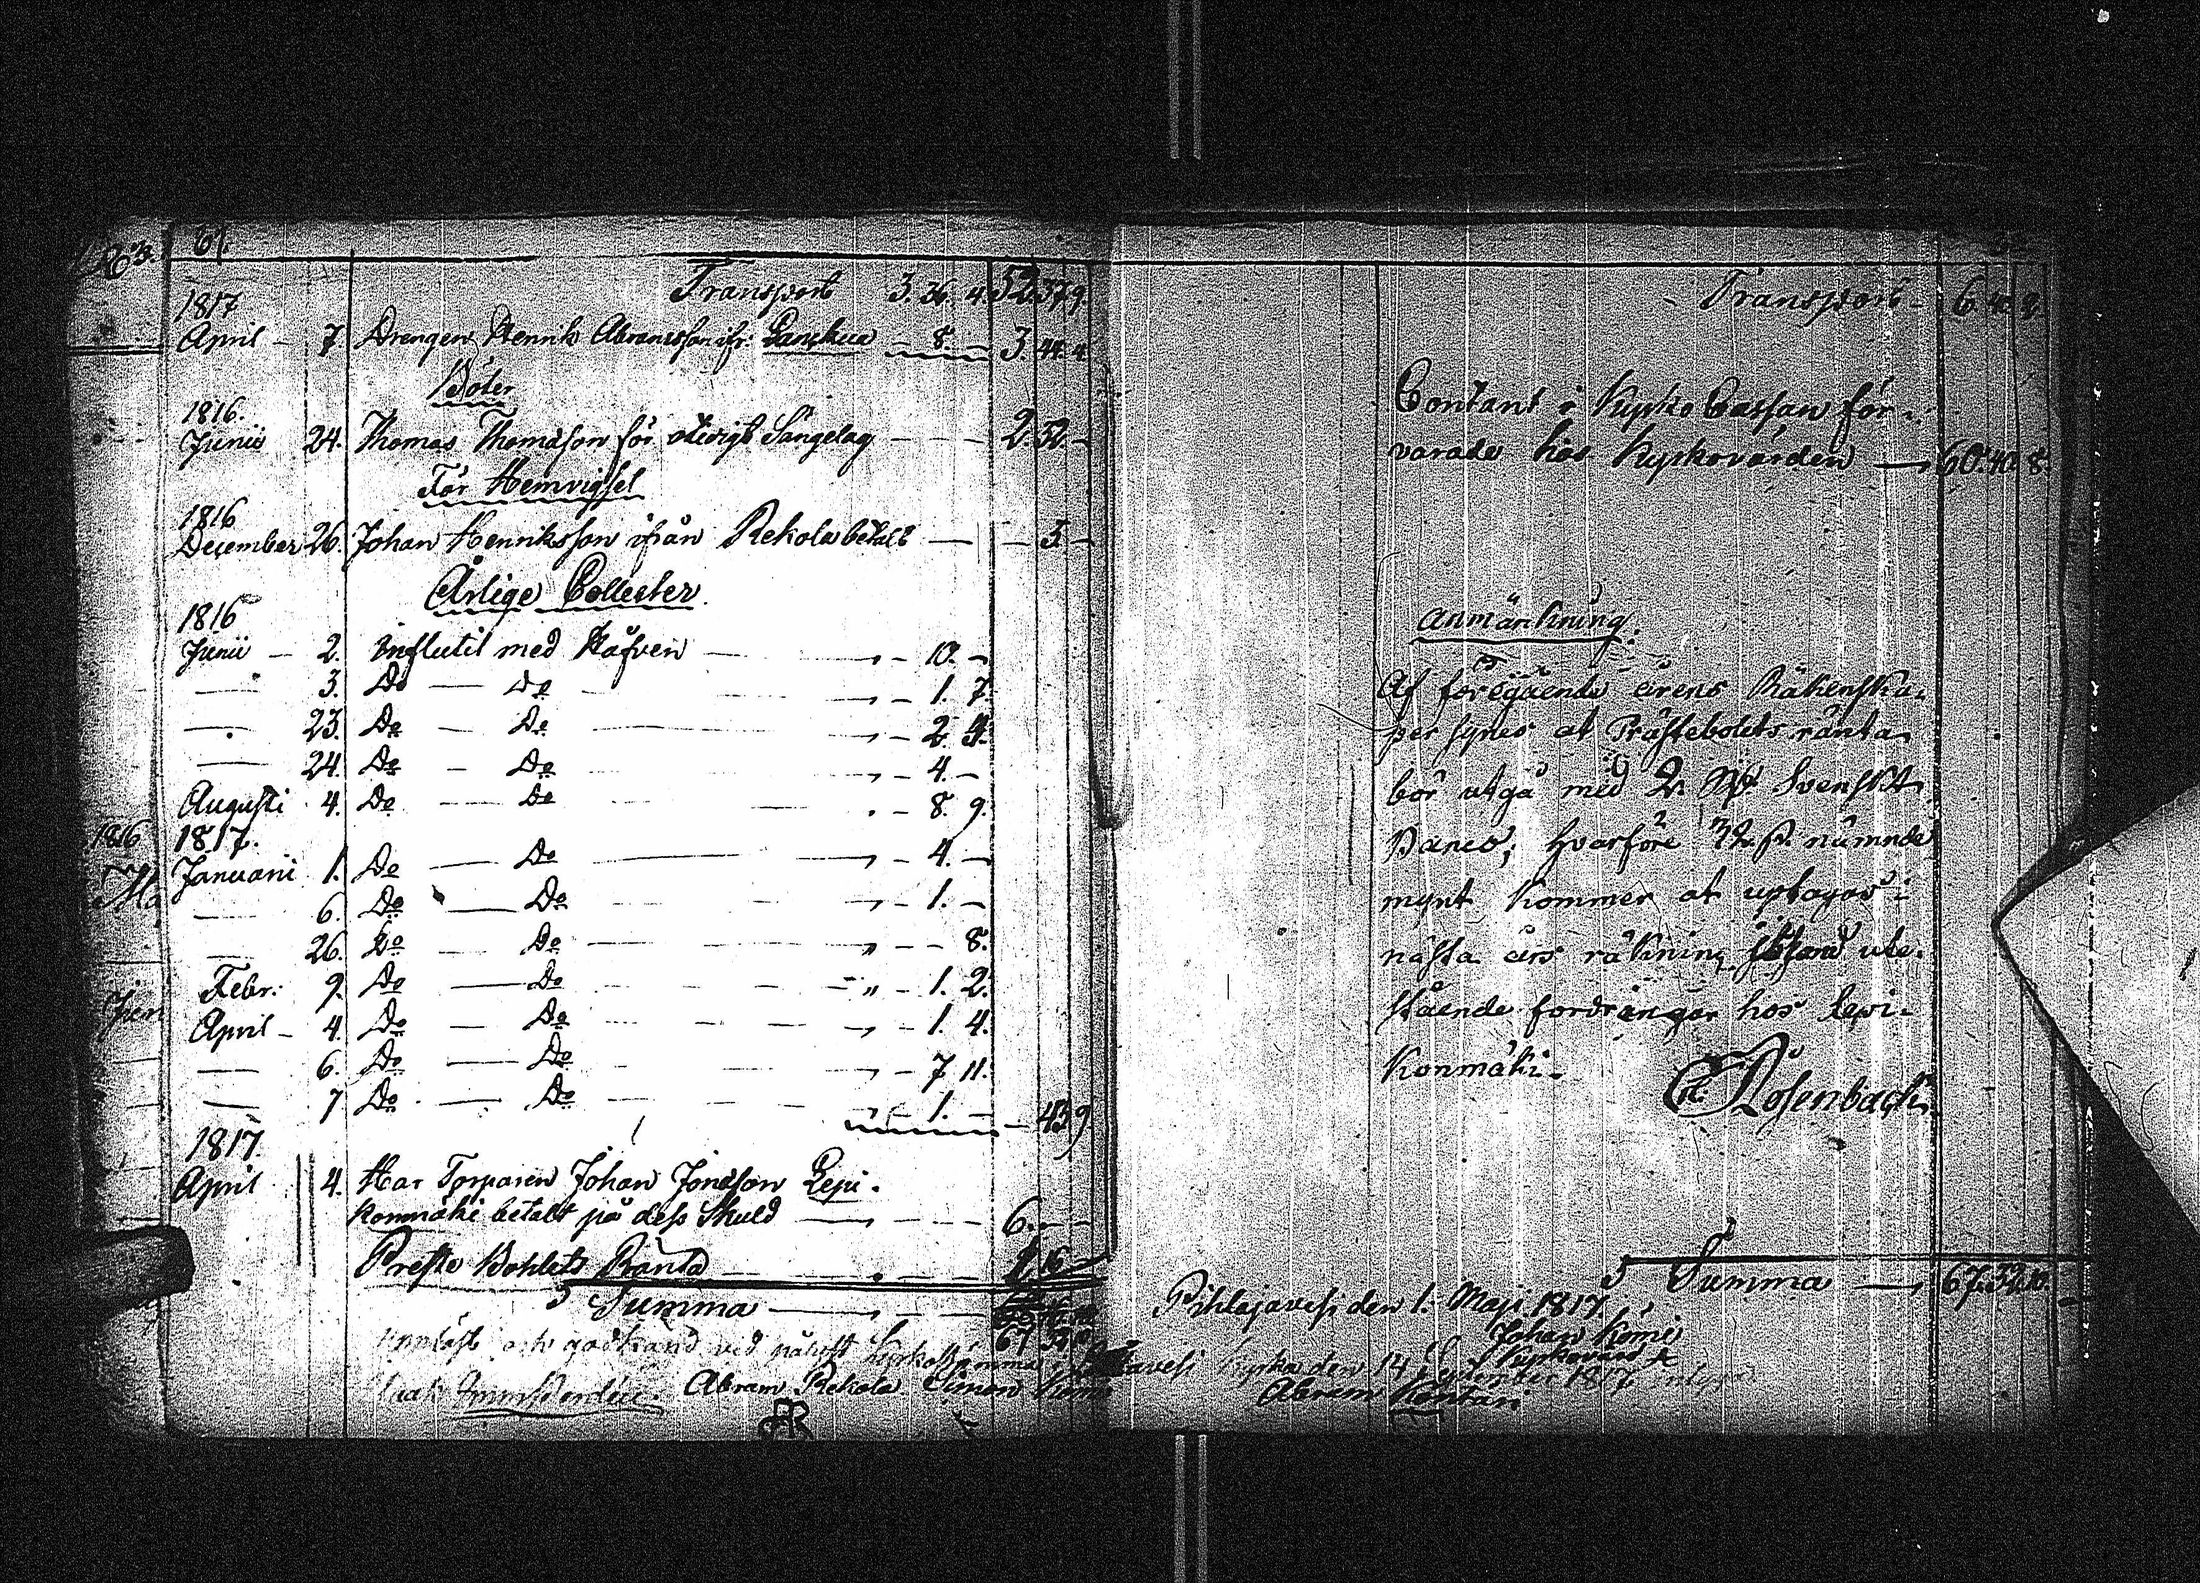 61.
Transport 3. 36. 4. 52. 37. 9.
1817
April – 7 Drengen Henrik Abramsson ifr: — 8. — 3. 44. 4.
Böter
1816.
Junii 24. Thomas Thomasson för otidigt Sängelag — 2. 52. –
För Hemvigsel
1816
December 26. Johan Henriksson ifrån Rekola betalt — – 3. –
Årlige Collecter
1816
Junii – 2. Influtit med Håfven — 10. –
3. Do — Do — 1. 7.
23. Do — Do — 2. 4.
24. Do — Do — 4. –
Augusti 4. Do — Do — 8. 9.
1817.
Januarii 1. Do — Do — 4. –
6. Do — Do — 1. –
26. Do — Do — 8.
Febr: 9. Do — Do — 1. 2.
April – 4. Do — Do — 1. 4.
6. Do — Do — 7 11.
7 Do — Do — 1. – – 43 9
1817.
April 4. Har Torparen Johan Jonasson Lepi-
konmäki betalt på dess Skuld — 6. – –
Preste Bohlets Ränta — 1. 16 –
Summa — 67 32 10
Uppläst och godkänd vid påliust Kyrkostämma i Kyrka den 14 September 1817
Abram Rekola Simon
Abram Kontari
Transport – 6. 40. 2.
Contant i Kyrko Cassan för-
varade hos Kyrkovärden — 60. 40. 8.
Anmärkning.
Af föregående årens Räkenska-
per synes at Prästebolets ränta
bör utgå med 2 Rd Svenskt
Banco, hvarföre 32 s. nämnde
mynt kommer at uptagas i
nästa års räkning ibland ute-
stående fordringar hos Lepi-
konmäki.
Rosenback.
Summa — 67. 32. 10.
Pihlajavesi den 1. Maji 1817
Johan Komi
Kyrkovärd